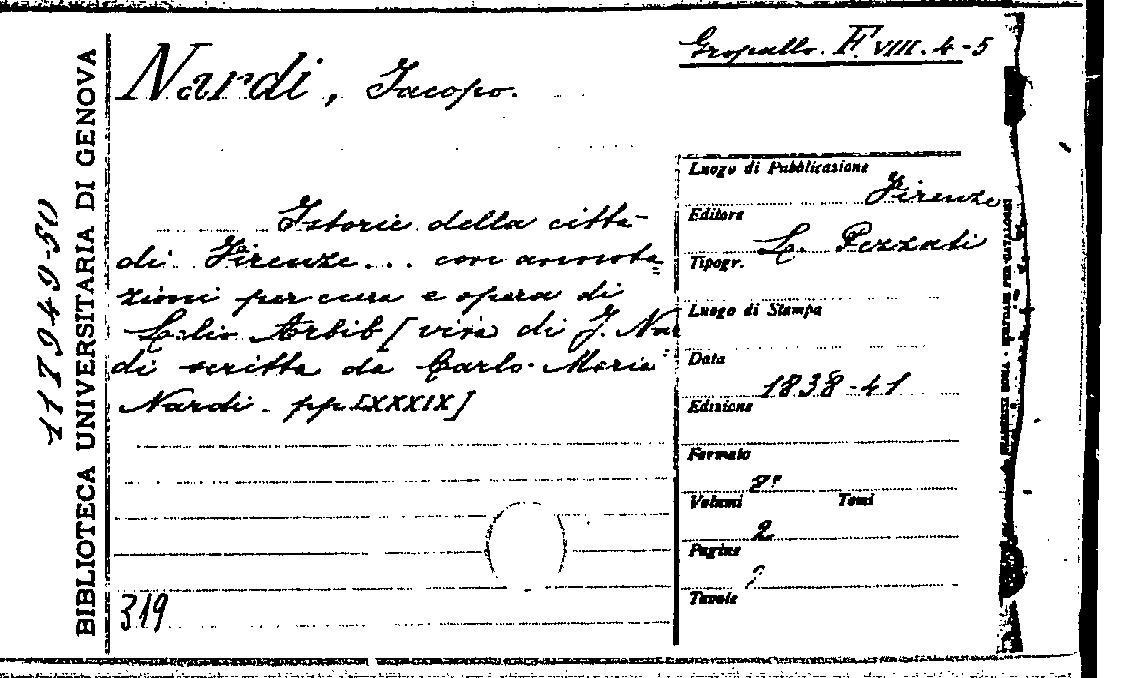 Gropallo. F. VIII. 4-5
Nardi, Jacopo.
Istorie della città
di Firenze... con annota=
zioni per cura e opera di
Lelio Arbib [vita di J. Nar=
di scritta da Carlo Maria
Nardi - pp. LXXXIX]
319
Luogo di Pubblicazione
Firenze
Editore
L. Pezzati
Tipogr.
Luogo di Stampa
Data
1838-41
Edizione
Formato
8°
Volumi Tomi
2
Pagine
Tavole
BIBLIOTECA UNIVERSITARIA DI GENOVA
117949-50